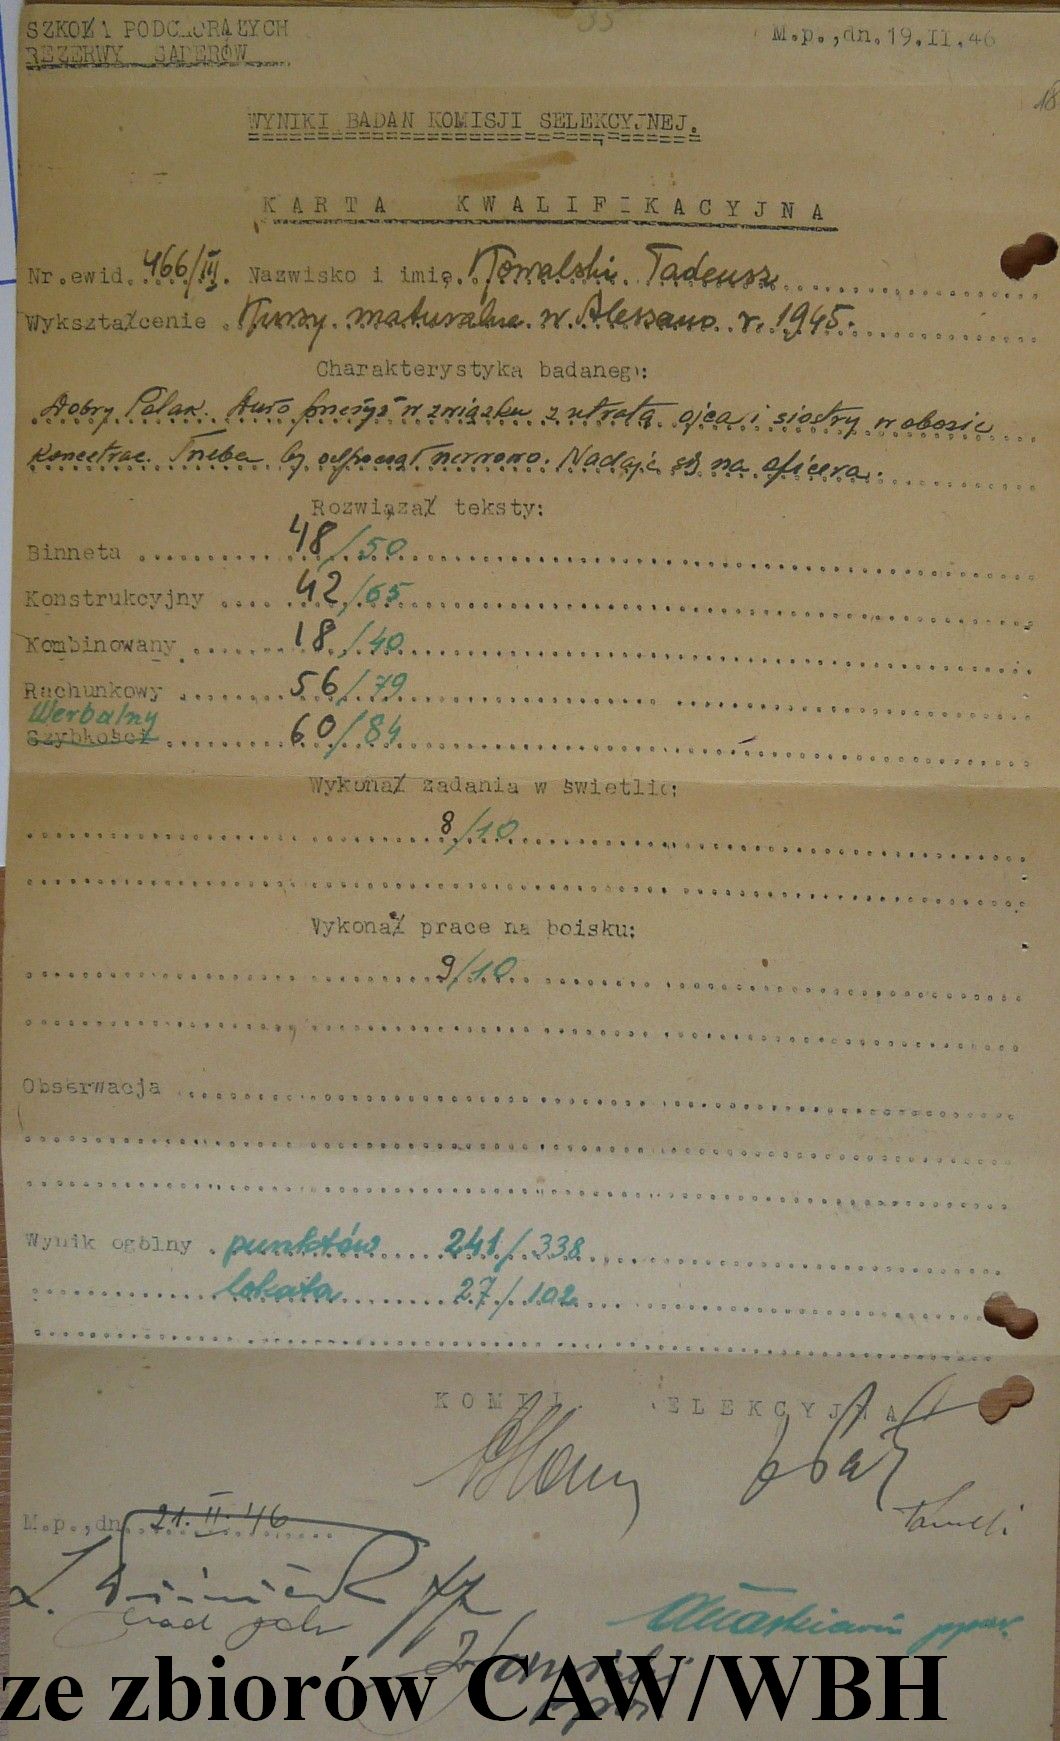 SZKOŁA PODCHORĄŻYCH
REZERWY SAPERÓW
M.p.,dn.19.II.46
18
WYNIKI BADAN KOMISJI SELEKCYJNEJ.
KARTA KWALIFIKACYJNA
Nr.ewid. 466/III. Nazwisko i imię. Kowalski Tadeusz
Wykształcenie Kursy maturalne w Alessano r. 1945.
Charakterystyka badanego:
Dobry Polak. Dużo przeżył w związku z utratą ojca i siostry w obozie
koncetrac. Trzeba by odpoczął nerwowo. Nadaje się na oficera.
Rozwiązał teksty:
Binneta 48/50
Konstrukcyjny 42/65
Kombinowany 18/40
Rachunkowy 56/79
Werbalny
Szybkości 60/84
Wykonał zadania w świetlic:
8/10
Wykonał prace na boisku:
9/10
Obserwacja
Wynik ogólny punktów 241/338
lokata 27/102
KOMI ELEKCYJNA
M.p.,dn. 21.II.46
ze zbiorów CAW/WBH